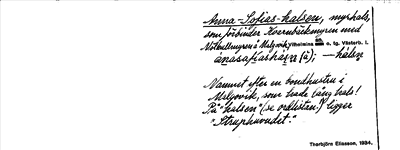 Anna-Sofias-halsen, myrhals,
som förbinder Kornbäckmyren med
Nötbullmyren å Malgovik, Vilhelmina o. tg. Västerb. l.
ánasafiashás̱n (á); —hálsn
Namnet efter en bondhustru i
Malgovik, som hade (äng hals!
På "halsen" (se ordlistan!) ligger
"Struphuvudet."
Thorbjörn Eliasson, 1934.